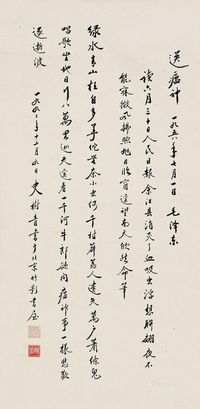 送瘟神
一九五八年七月一日 毛泽东
读六月三十日人民日报余江县消灭了血吸虫浮想联翩夜不
能寐微风拂煦旭日临窗遥望南天欣然命笔
绿水青山枉自多华佗无奈小虫何千村薜荔人遗矢万户萧疏鬼
唱歌坐地日行八万里巡天遥看一千河牛郎欲问瘟神事一样悲欢
逐逝波